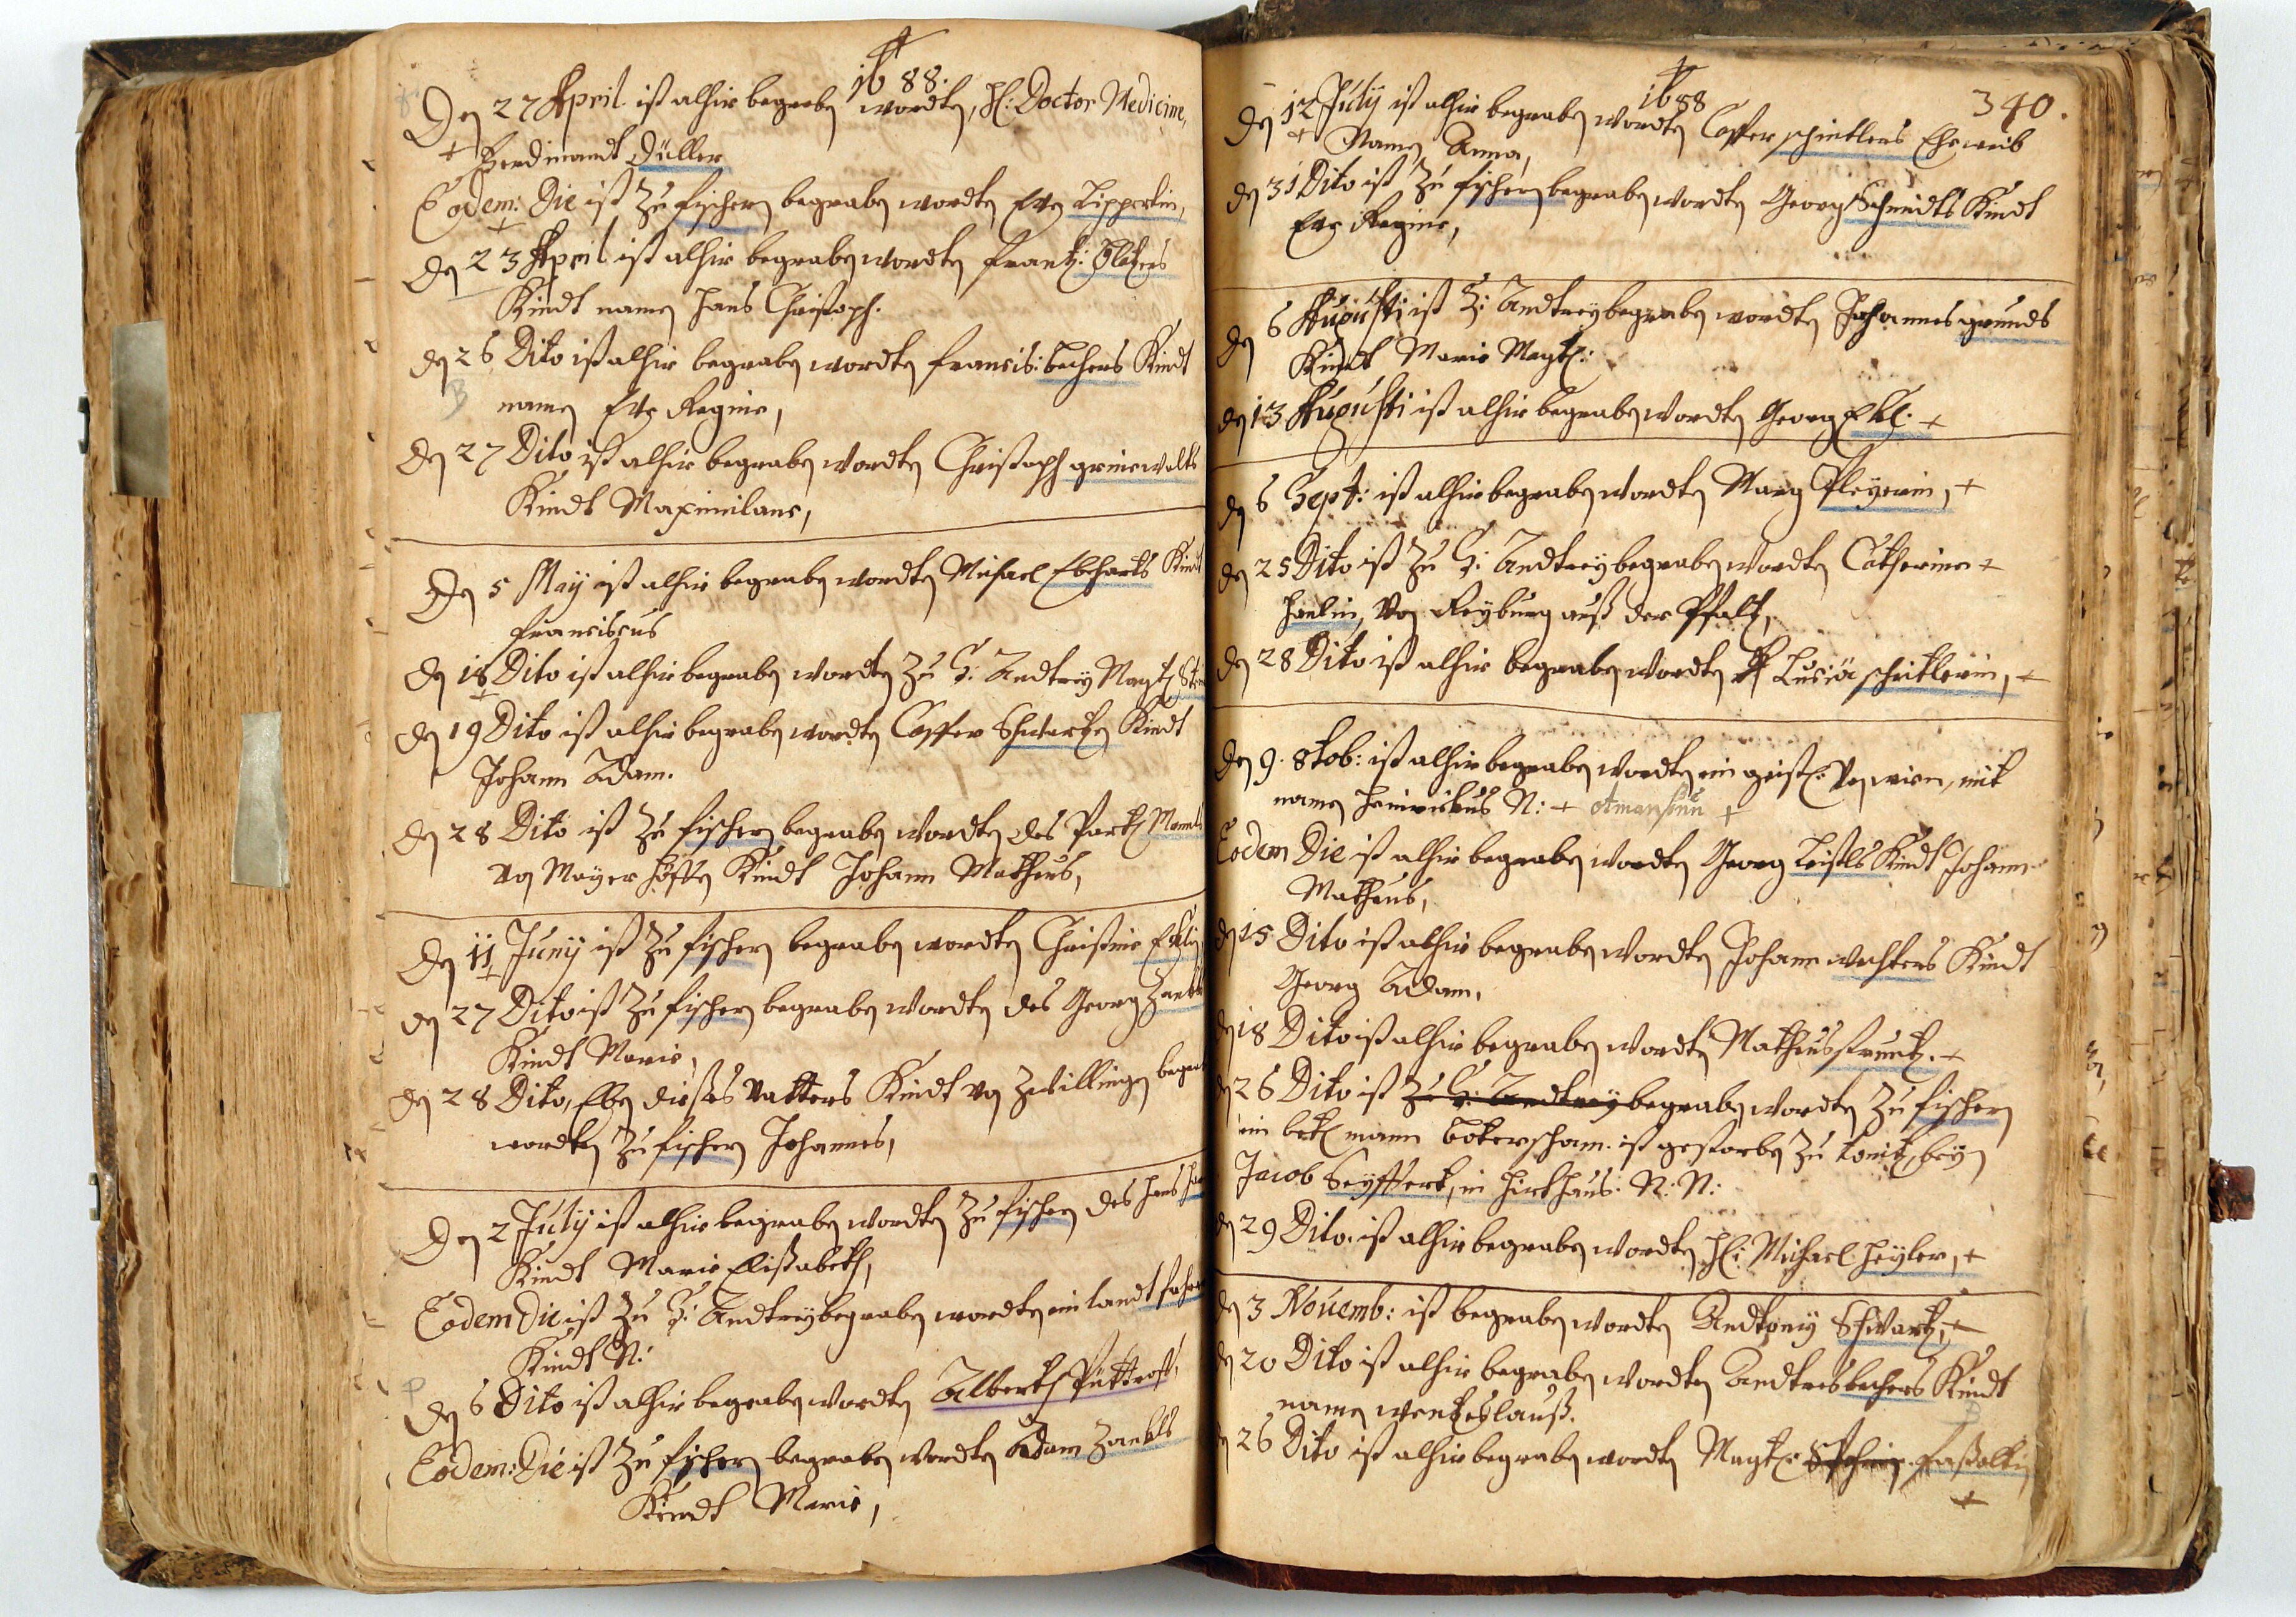 1688.
Den 27 April ist alhir begraben wordten, Hl: Doctor Medicine,
+ Ferdinandt Düller
Eodem: Die ist zu fischern begraben wordten Eva Lippertin,
den 23 April ist alhir begraben wordten Frantz:
Kindt namen Hans Christoph.
den 26 Dito ist alhir begraben wordten francis: bechers Kindt
namen Eva Regina,
den 27 Dito ist alhir begraben wordten Christoph grinewalts
Kindt Maximilane,
Den 5 Maÿ ist alhir begraben wordten Michael Ebharts Kindt
franciscus
den 18 Dito ist alhir begraben wordten zu S: Andtreÿ Magt:
den 19 Dito ist alhir begraben wordten Casper Schwartzen Kindt
Johann Adam.
den 28 Dito ist zu fischern begraben wordten des
von Mayerhöffen Kindt Johann Matheus,
Den 11 Junÿ ist zu fischern begraben wordten Christina
den 27 Dito ist zu fischern begraben wordten des Georg
Kindt Maria,
den 28 Dito, Eben dießes Vatters Kindt von Zwillingen
wordten zu fischern Johannes,
Den 2 Julÿ ist alhir begraben wordten zu fischern des Hans
Kindt Maria Elisabeth,
Eodem Die ist zu S: Andtreÿ begraben wordten ein landt
Kindt N:
den 6 Dito ist alhir begraben wordten Alberth Püttroff,
Eodem: Die ist zu fischern begraben wordten Adam Zankls
Kindt Maria,
1688
340.
den 12 Julÿ ist alhir begraben wordten Casper schintlers Eheweib
+ Namen Anna,
den 31 Dito ist zu fischern begraben wordten Georg Schmidts Kindt
Eva Regina,
den 6 Augusti ist S: Andtreÿ begraben wordten Johannes grunds
Kindt Maria Magt:
den 13 Augusti ist alhir begraben wordten Georg +
den 6 Sept: ist alhir begraben wordten Marg Pleÿerin, +
den 25 Dito ist zu S: Andtreÿ begraben wordten Catherina +
von Reÿburg auß der Pfaltz,
den 28 Dito ist alhir begraben wordten Lusia schitlerin, +
Den 9. 8tob: ist alhir begraben wordten ein geistl: von wien, mit
namen Henrickus N: +
Eodem Die ist alhir begraben wordten Georg Leistls Kindt Johann
Matheus,
den 15 Dito ist alhir begraben wordten Johann wachters Kindt
Georg Adam,
den 18 Dito ist alhir begraben wordten Matheus +
den 26 Dito ist zu S: Andtreÿ begraben wordten zu fischern
ein betl mann ist gestorben zu beÿ
Jacob Seÿffert, in Hirthaus. N: N:
den 29 Dito. ist alhir begraben wordten Hl: Michael Heÿler, +
den 3 Novemb: ist begraben wordten Andtonÿ Schwartz, +
den 20 Dito ist alhir begraben wordten Andtres bechers Kindt
namen wentzeslauß.
den 26 Dito ist alhir begraben wordten Magt:
+